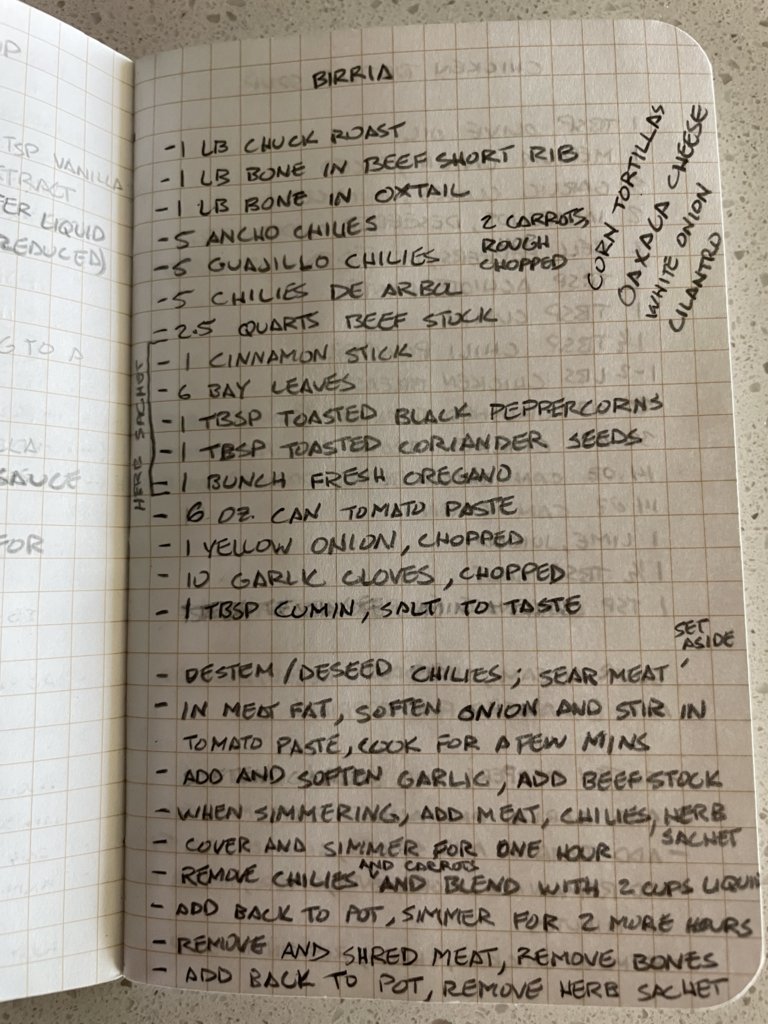 UP
TSP VANILLA
EXTRACT
LIQUID
REDUCED)
G TO A
SAUCE
FOR
BIRRIA
-1 LB CHUCK ROAST
-1 LB BONE IN BEEF SHORT RIB
-1 LB BONE IN OXTAIL
-5 ANCHO CHILIES
-5 GUAJILLO CHILIES
-5 CHILIES DE ARBOL
-2.5 QUARTS BEEF STOCK
-1 CINNAMON STICK
-6 BAY LEAVES
-1 TBSP TOASTED BLACK PEPPERCORNS
-1 TBSP TOASTED CORIANDER SEEDS
-1 BUNCH FRESH OREGANO
HERB SACHET
- 6 OZ. CAN TOMATO PASTE
- 1 YELLOW ONION, CHOPPED
- 10 GARLIC CLOVES, CHOPPED
- 1 TBSP CUMIN, SALT TO TASTE
2 CARROTS,
ROUGH
CHOPPED
CORN TORTILLAS
OAXACA CHEESE
WHITE ONION
CILANTRO
- DESTEM/DESEED CHILIES; SEAR MEAT, SET ASIDE
- IN MEAT FAT, SOFTEN ONION AND STIR IN
TOMATO PASTE, COOK FOR A FEW MINS
- ADD AND SOFTEN GARLIC, ADD BEEF STOCK
- WHEN SIMMERING, ADD MEAT, CHILIES, HERB SACHET
- COVER AND SIMMER FOR ONE HOUR
- REMOVE CHILIES AND CARROTS AND BLEND WITH 2 CUPS LIQUID
- ADD BACK TO POT, SIMMER FOR 2 MORE HOURS
- REMOVE AND SHRED MEAT, REMOVE BONES
- ADD BACK TO POT, REMOVE HERB SACHET